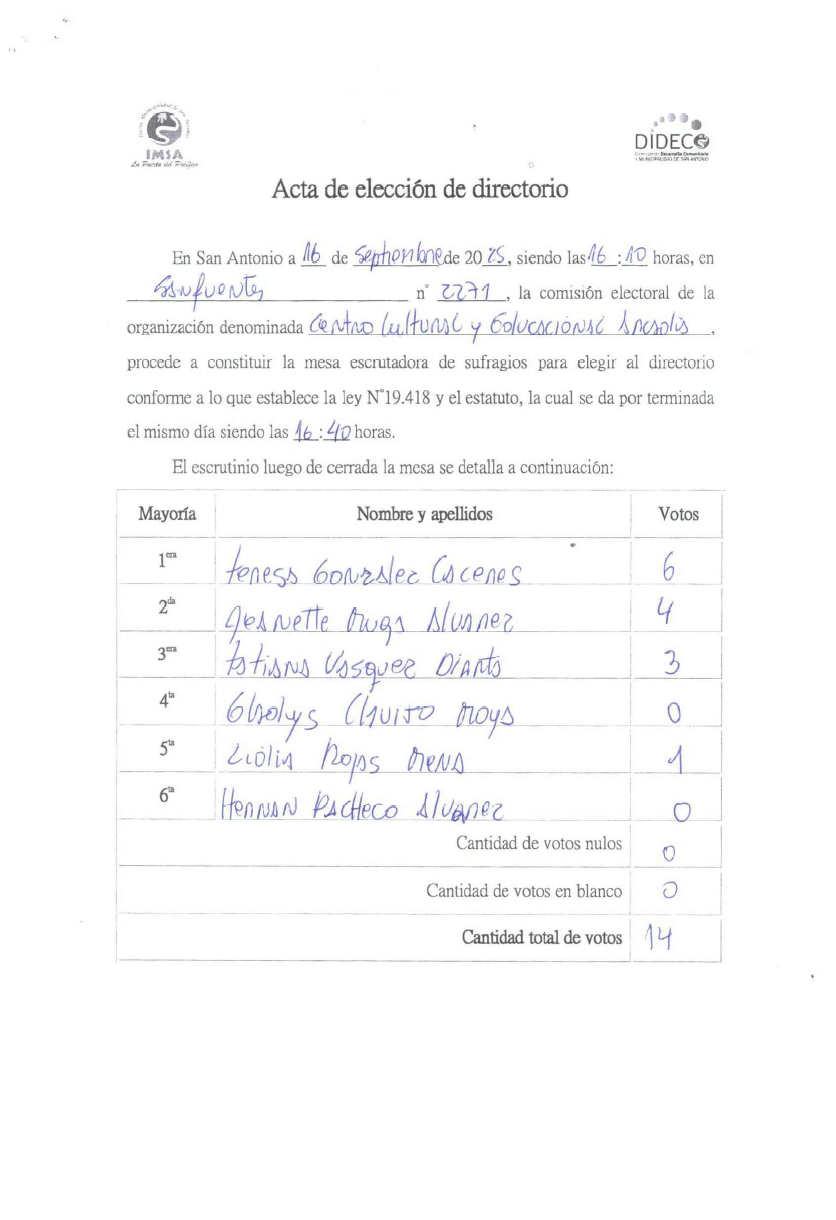 IMSA
La Puerta del Pacífico
DIDECO
Acta de elección de directorio
En San Antonio a 16 de Septiembre de 2025, siendo las 16:10 horas, en
Sanfuentes n° 2271, la comisión electoral de la
organización denominada Centro Cultural y Educacional Arcasolis,
procede a constituir la mesa escrutadora de sufragios para elegir al directorio
conforme a lo que establece la ley N°19.418 y el estatuto, la cual se da por terminada
el mismo día siendo las 16:40 horas.
El escrutinio luego de cerrada la mesa se detalla a continuación:
Mayoría Nombre y apellidos Votos
1era Teresa Gonzalez Caceres 6
2da Jeanette Alvarez 4
3era Tatiana Vasquez 3
4ta Gladys Moya 0
5ta Rojas Mena 1
6ta Hernan Pacheco Alvarez 0
Cantidad de votos nulos 0
Cantidad de votos en blanco 0
Cantidad total de votos 14